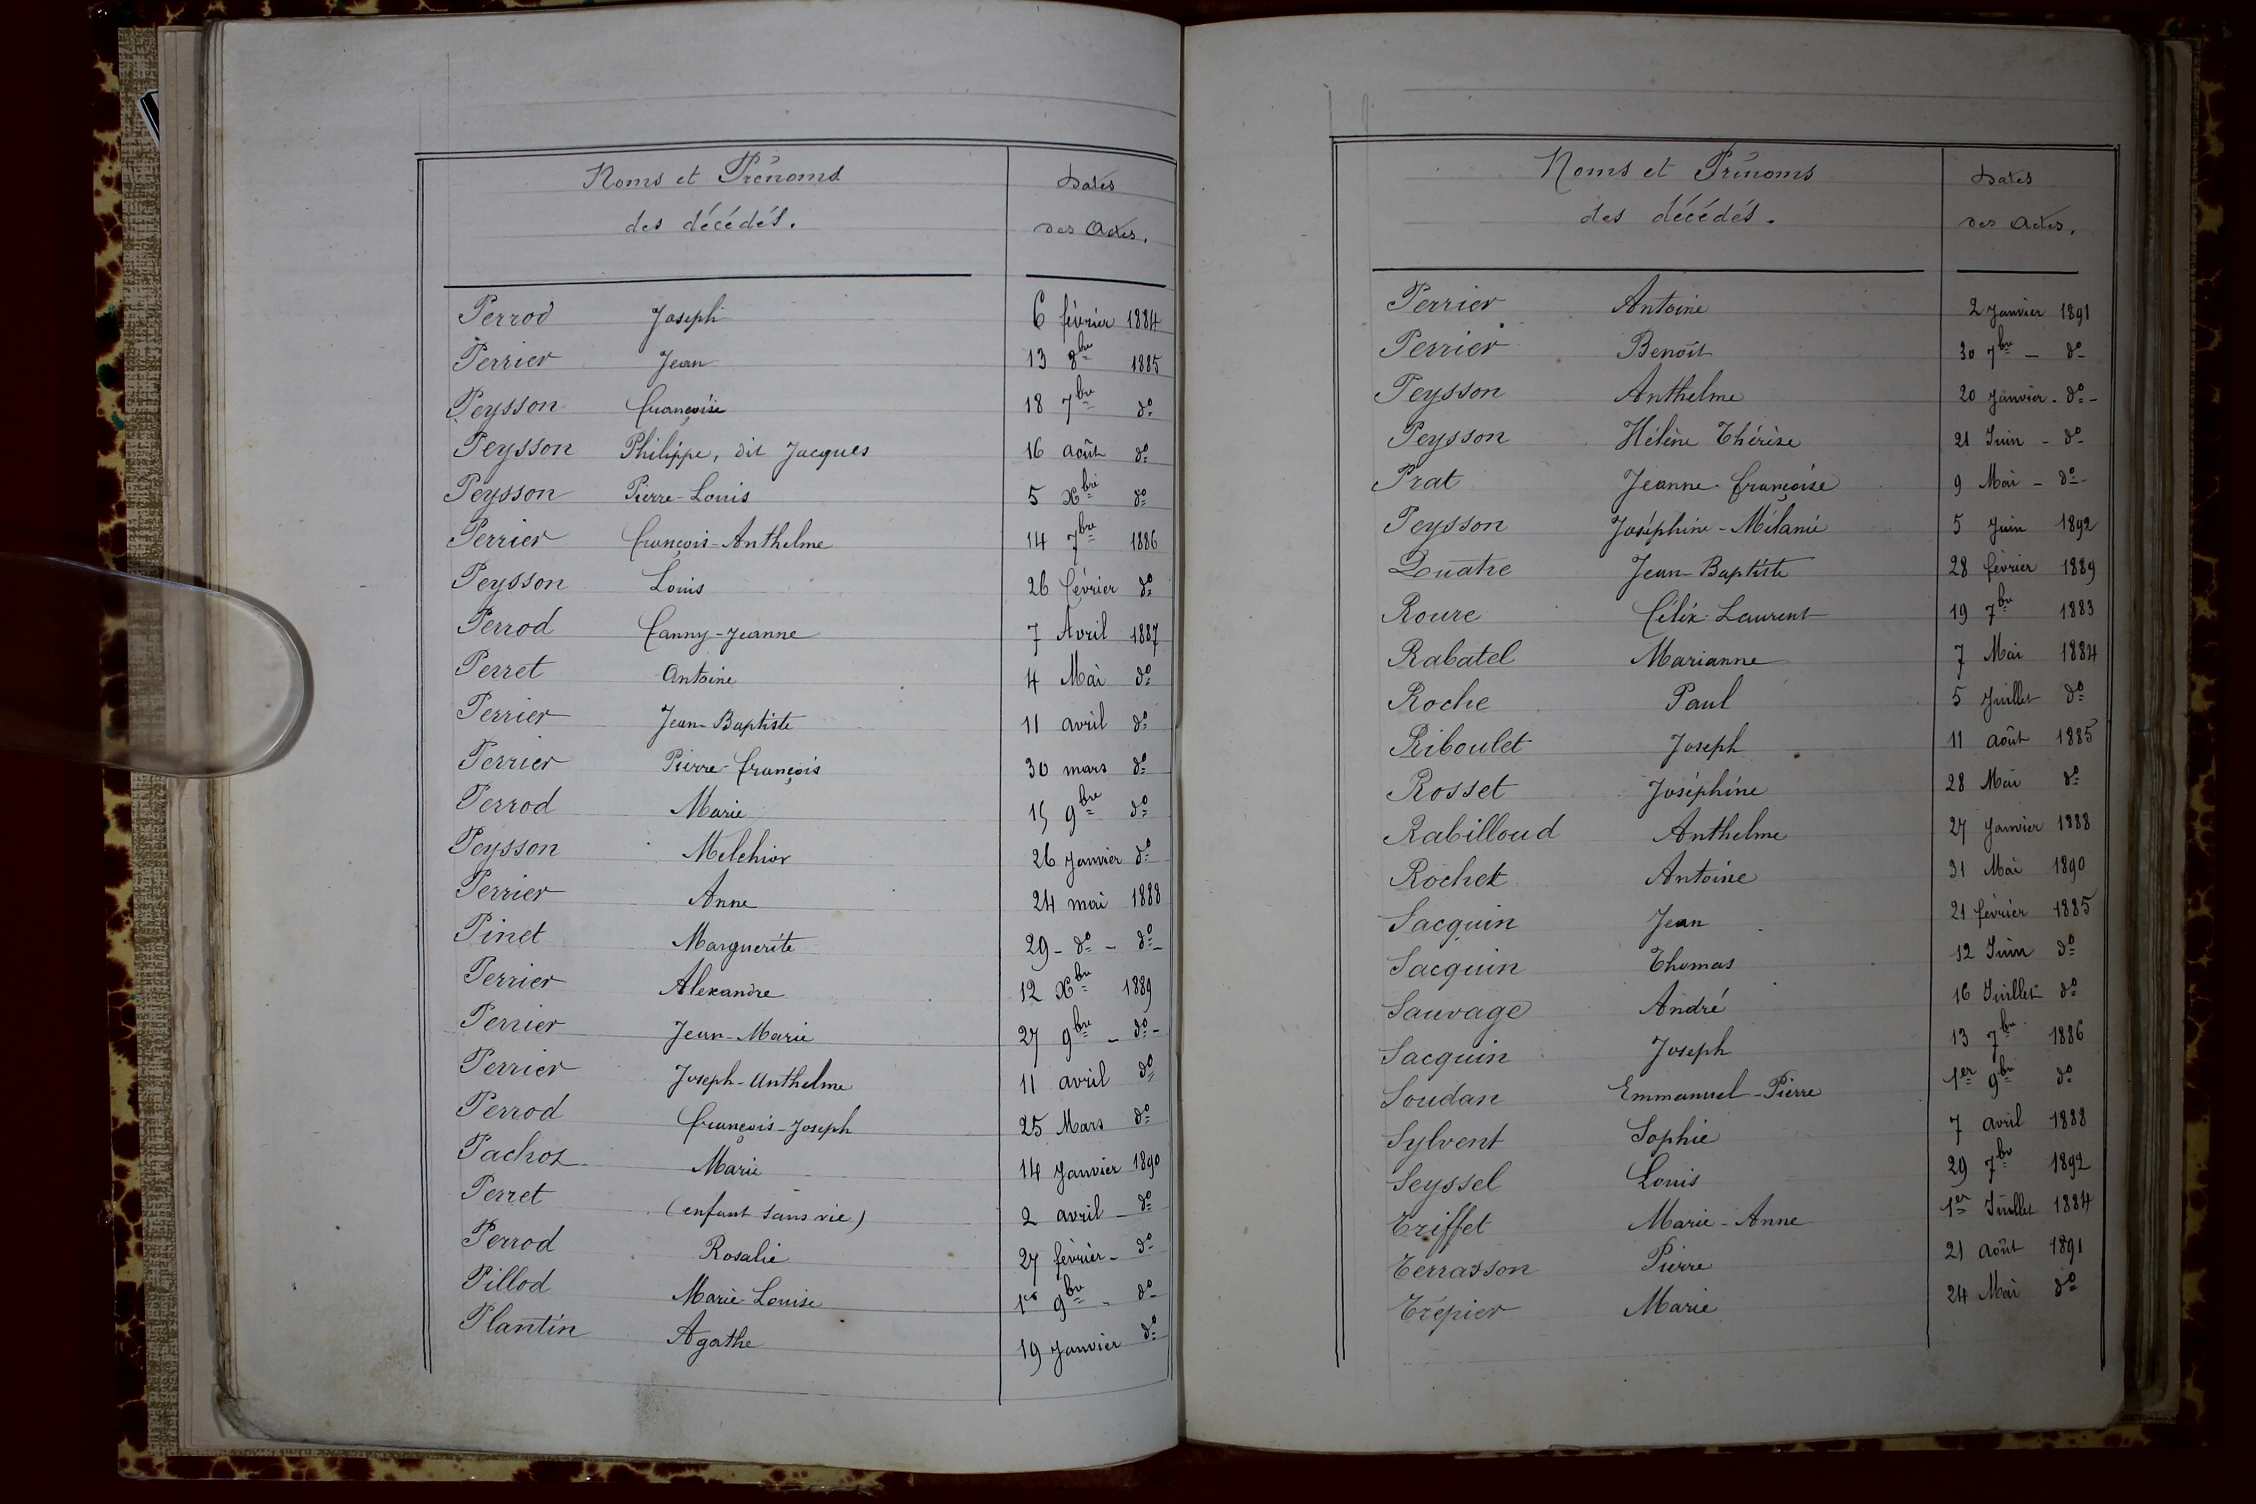 Noms et Prénoms
des décédés.
Dates
des Actes.
Perrod Joseph 6 février 1884
Perrier Jean 13 8bre 1885
Peysson Françoise 18 7bre do
Peysson Philippe, dit Jacques 16 août do
Peysson Pierre-Louis 5 Xbre do
Perrier François-Anthelme 14 7bre 1886
Peysson Louis 26 février do
Perrod Fanny-Jeanne 7 Avril 1887
Perret Antoine 4 Mai do
Perrier Jean-Baptiste 11 avril do
Perrier Pierre-François 30 mars do
Perrod Marie 15 9bre do
Peysson Melchior 26 Janvier do
Perrier Anne 24 mai 1888
Pinet Marguerite 29 - do - do -
Perrier Alexandre 12 Xbre 1889
Perrier Jean-Marie 27 9bre - do -
Perrier Joseph-Anthelme 11 avril do
Perrod François-Joseph 25 Mars do
Pachoz Marie 14 Janvier 1890
Perret (enfant sans vie) 2 avril - do
Perrod Rosalie 27 février - do
Pillod Marie-Louise 1er 9bre - do
Plantin Agathe 19 Janvier do
Noms et Prénoms
des décédés.
Dates
des Actes.
Perrier Antoine 2 Janvier 1891
Perrier Benoît 30 7bre - do
Peysson Anthelme 20 Janvier - do -
Peysson Hélène Thérèse 21 Juin - do
Prat Jeanne-Françoise 9 Mai - do -
Peysson Joséphine-Mélanie 5 Juin 1892
Quatre Jean-Baptiste 28 février 1889
Roure Félix-Laurent 19 7bre 1883
Rabatel Marianne 7 Mai 1884
Roche Paul 5 Juillet do
Riboulet Joseph 11 août 1885
Rosset Joséphine 28 Mai do
Rabilloud Anthelme 27 Janvier 1888
Rochet Antoine 31 Mai 1890
Sacquin Jean 21 février 1885
Sacquin Thomas 12 Juin do
Sauvage André 16 Juillet do
Sacquin Joseph 13 7bre 1886
Soudan Emmanuel-Pierre 1er 9bre do
Sylvent Sophie 7 avril 1888
Seyssel Louis 29 7bre 1892
Triffet Marie-Anne 1er Juillet 1884
Terrasson Pierre 21 août 1891
Trépier Marie 24 Mai do